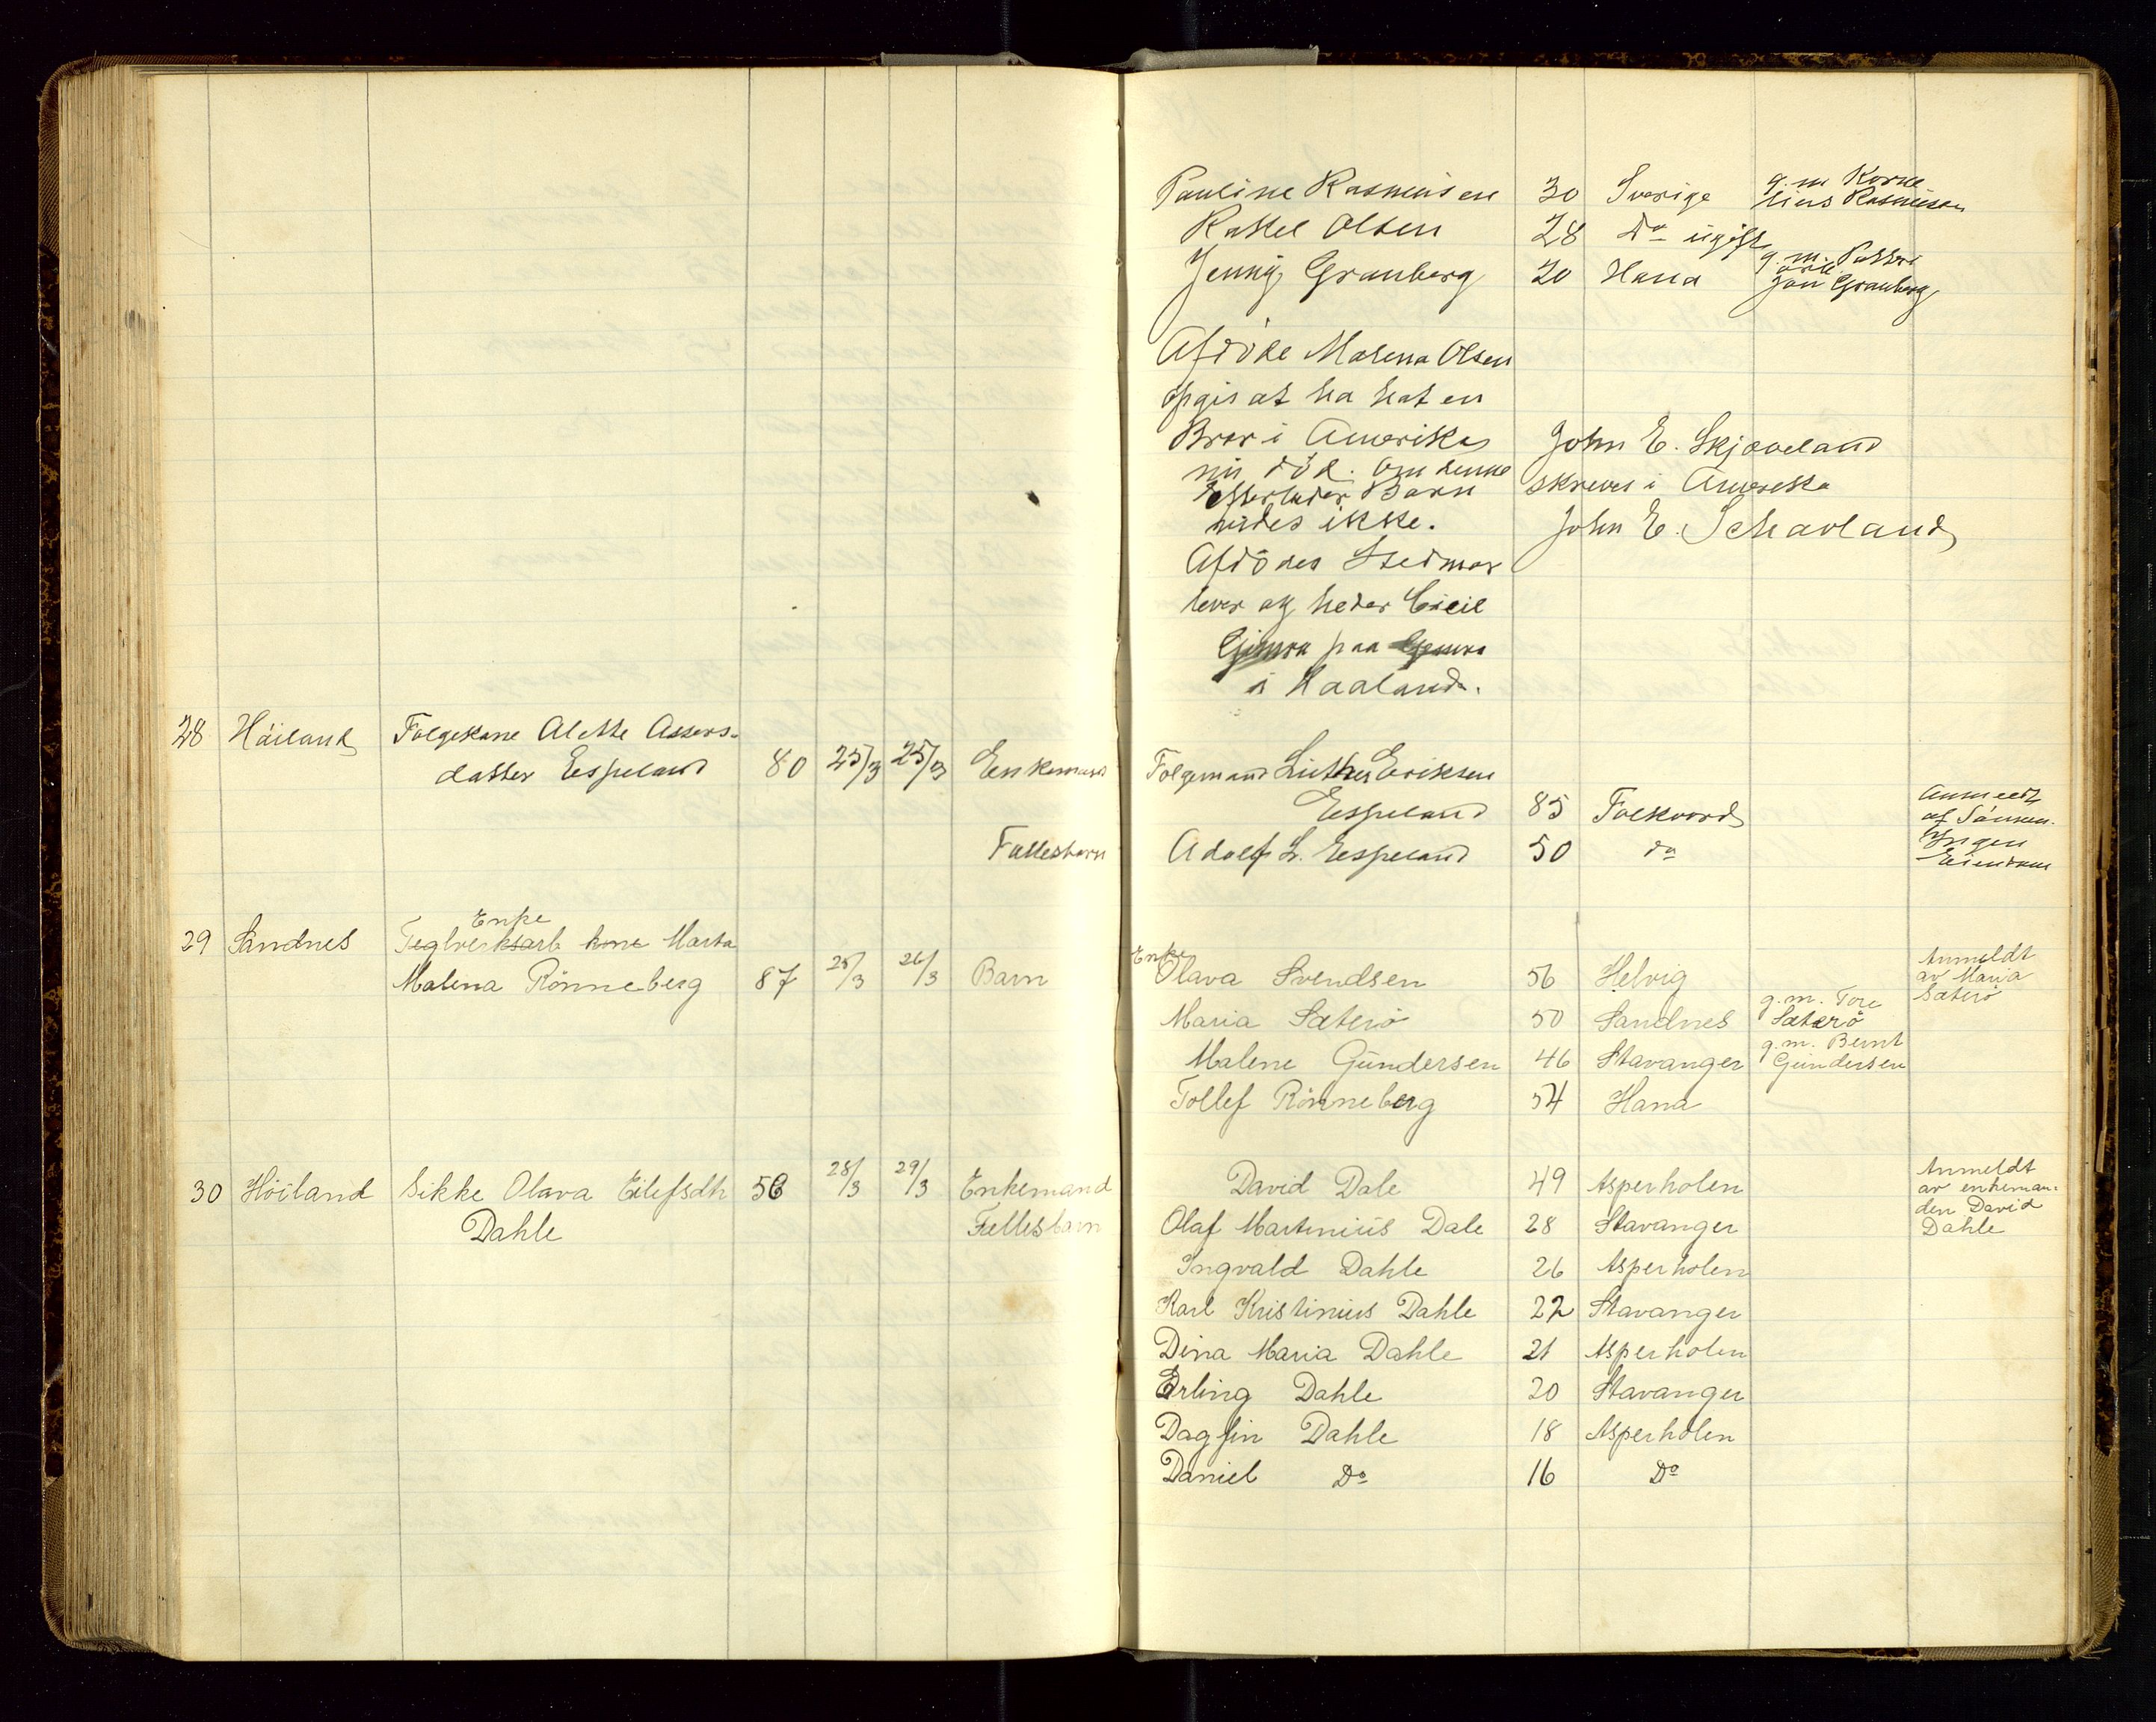 Pauline Rasmusen 30 Sverige g. m Korne
lius Rasmusen
Rakel Olsen 28 Do ugift
Jenny Granberg 20 Hana g. m.
Granberg
Afdöde Malena Olsen
opgis at ha hat en
Bror i Amerika John E. Skjæveland
nu död. Om denne
efterlader Barn skrives i Amerika
vides ikke. John E. Scheveland
Afdödes Stedmor
lever og heder
paa
i Haaland.
28 Höiland Folgekone Alette Assers-
datter Espeland 80 25/3 25/3 Enkemand Folgemand Luther Eriksen
Espeland 85 Folkvord Anmeldt
af Sönnen.
Fællesbarn Adolf L. Espeland 50 do Ingen
Eiendom
Enke
29 Sandnes Teglverksarb kone Marta
Malena Rönneberg 87 25/3 26/3 Barn Enke
Olava Svendsen 56 Helvig Anmeldt
av Maria
Sæterö
Maria Sæterö 50 Sandnes g. m. Tore
Sæterö
Malene Gundersen 46 Stavanger g. m. Bernt
Gundersen
Tollef Rönneberg 54 Hana
30 Höiland Sikke Olava Eilefsdtr 56 28/3 29/3 Enkemand David Dale 49 Asperholen Anmeldt
av enkeman-
den David
Dahle
Dahle Fællesbarn Olaf Martinius Dale 28 Stavanger
Ingvald Dahle 26 Asperholen
Karl Kristinius Dahle 22 Stavanger
Dina Maria Dahle 21 Asperholen
Erling Dahle 20 Stavanger
Dagfin Dahle 18 Asperholen
Daniel Do 16 Do